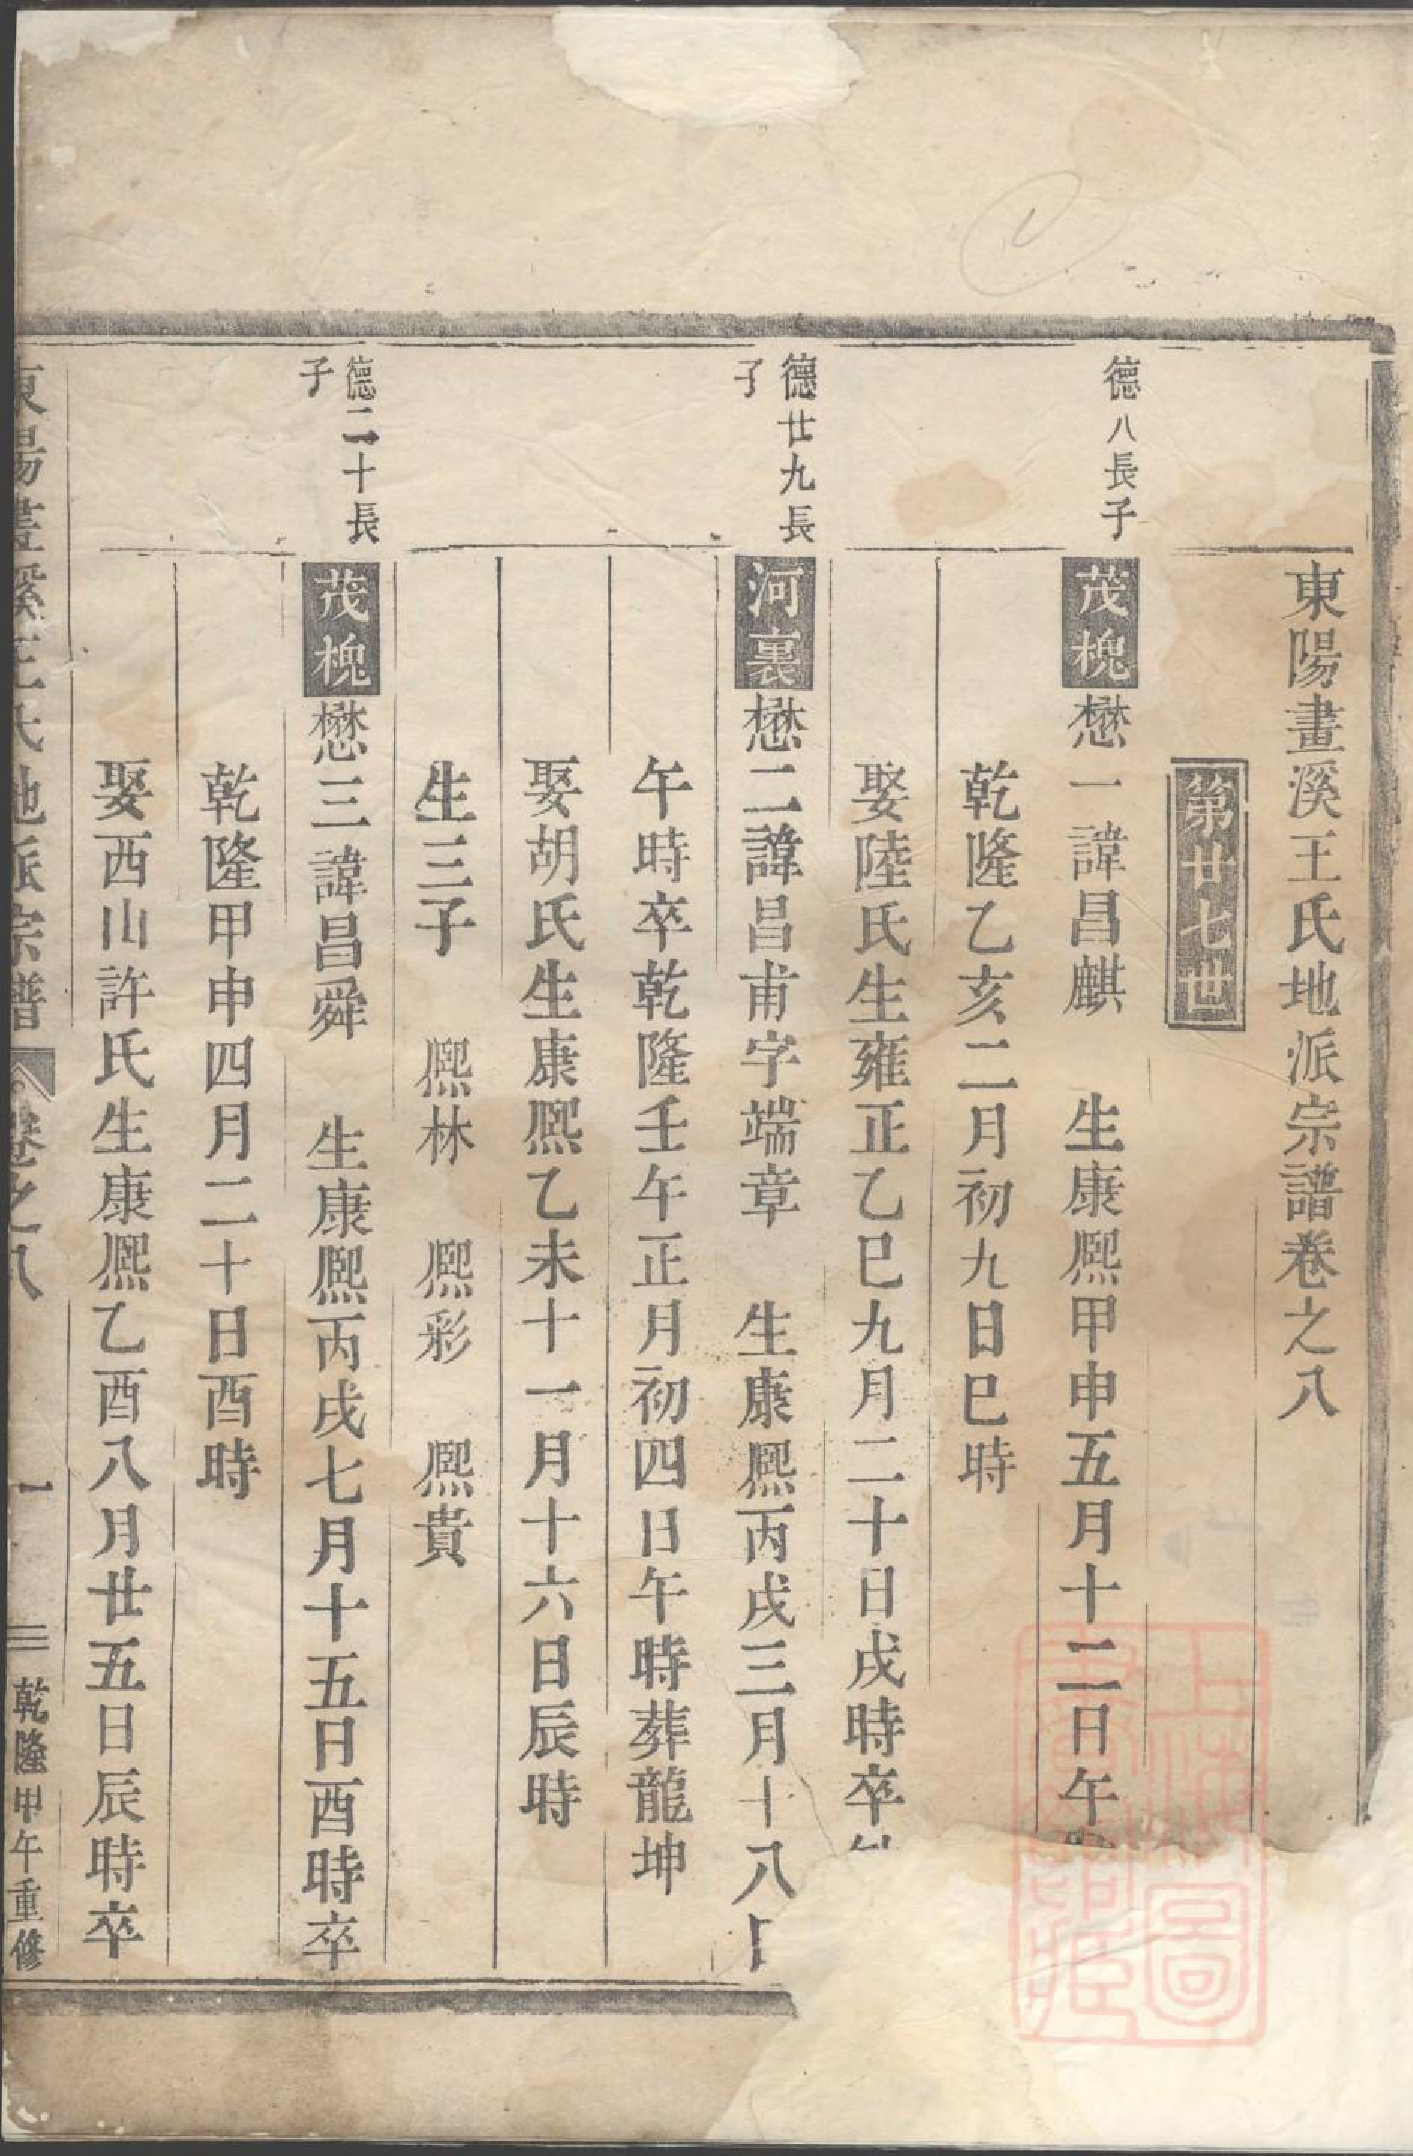 東陽畫溪王氏地派宗譜卷之八
第廿七世
德八長子
茂槐懋一諱昌麒　生康熈甲申五月十二日午
乾隆乙亥二月初九日巳時
娶陸氏生雍正乙巳九月二十日戌時卒
德廿九長
子
河裏懋二諱昌甫字端章　生康熈丙戌三月十八
午時卒乾隆壬午正月初四日午時葬龍坤
娶胡氏生康熈乙未十一月十六日辰時
生三子　熈林　熈彩　熈貴
德二十長
子
茂槐懋三諱昌舜　生康熈丙戌七月十五日酉時卒
乾隆甲申四月二十日酉時
娶西山許氏生康熈乙酉八月廿五日辰時卒
東陽畫溪王氏地派宗譜　卷之八　一　三　乾隆甲午重修
上海圖書館藏